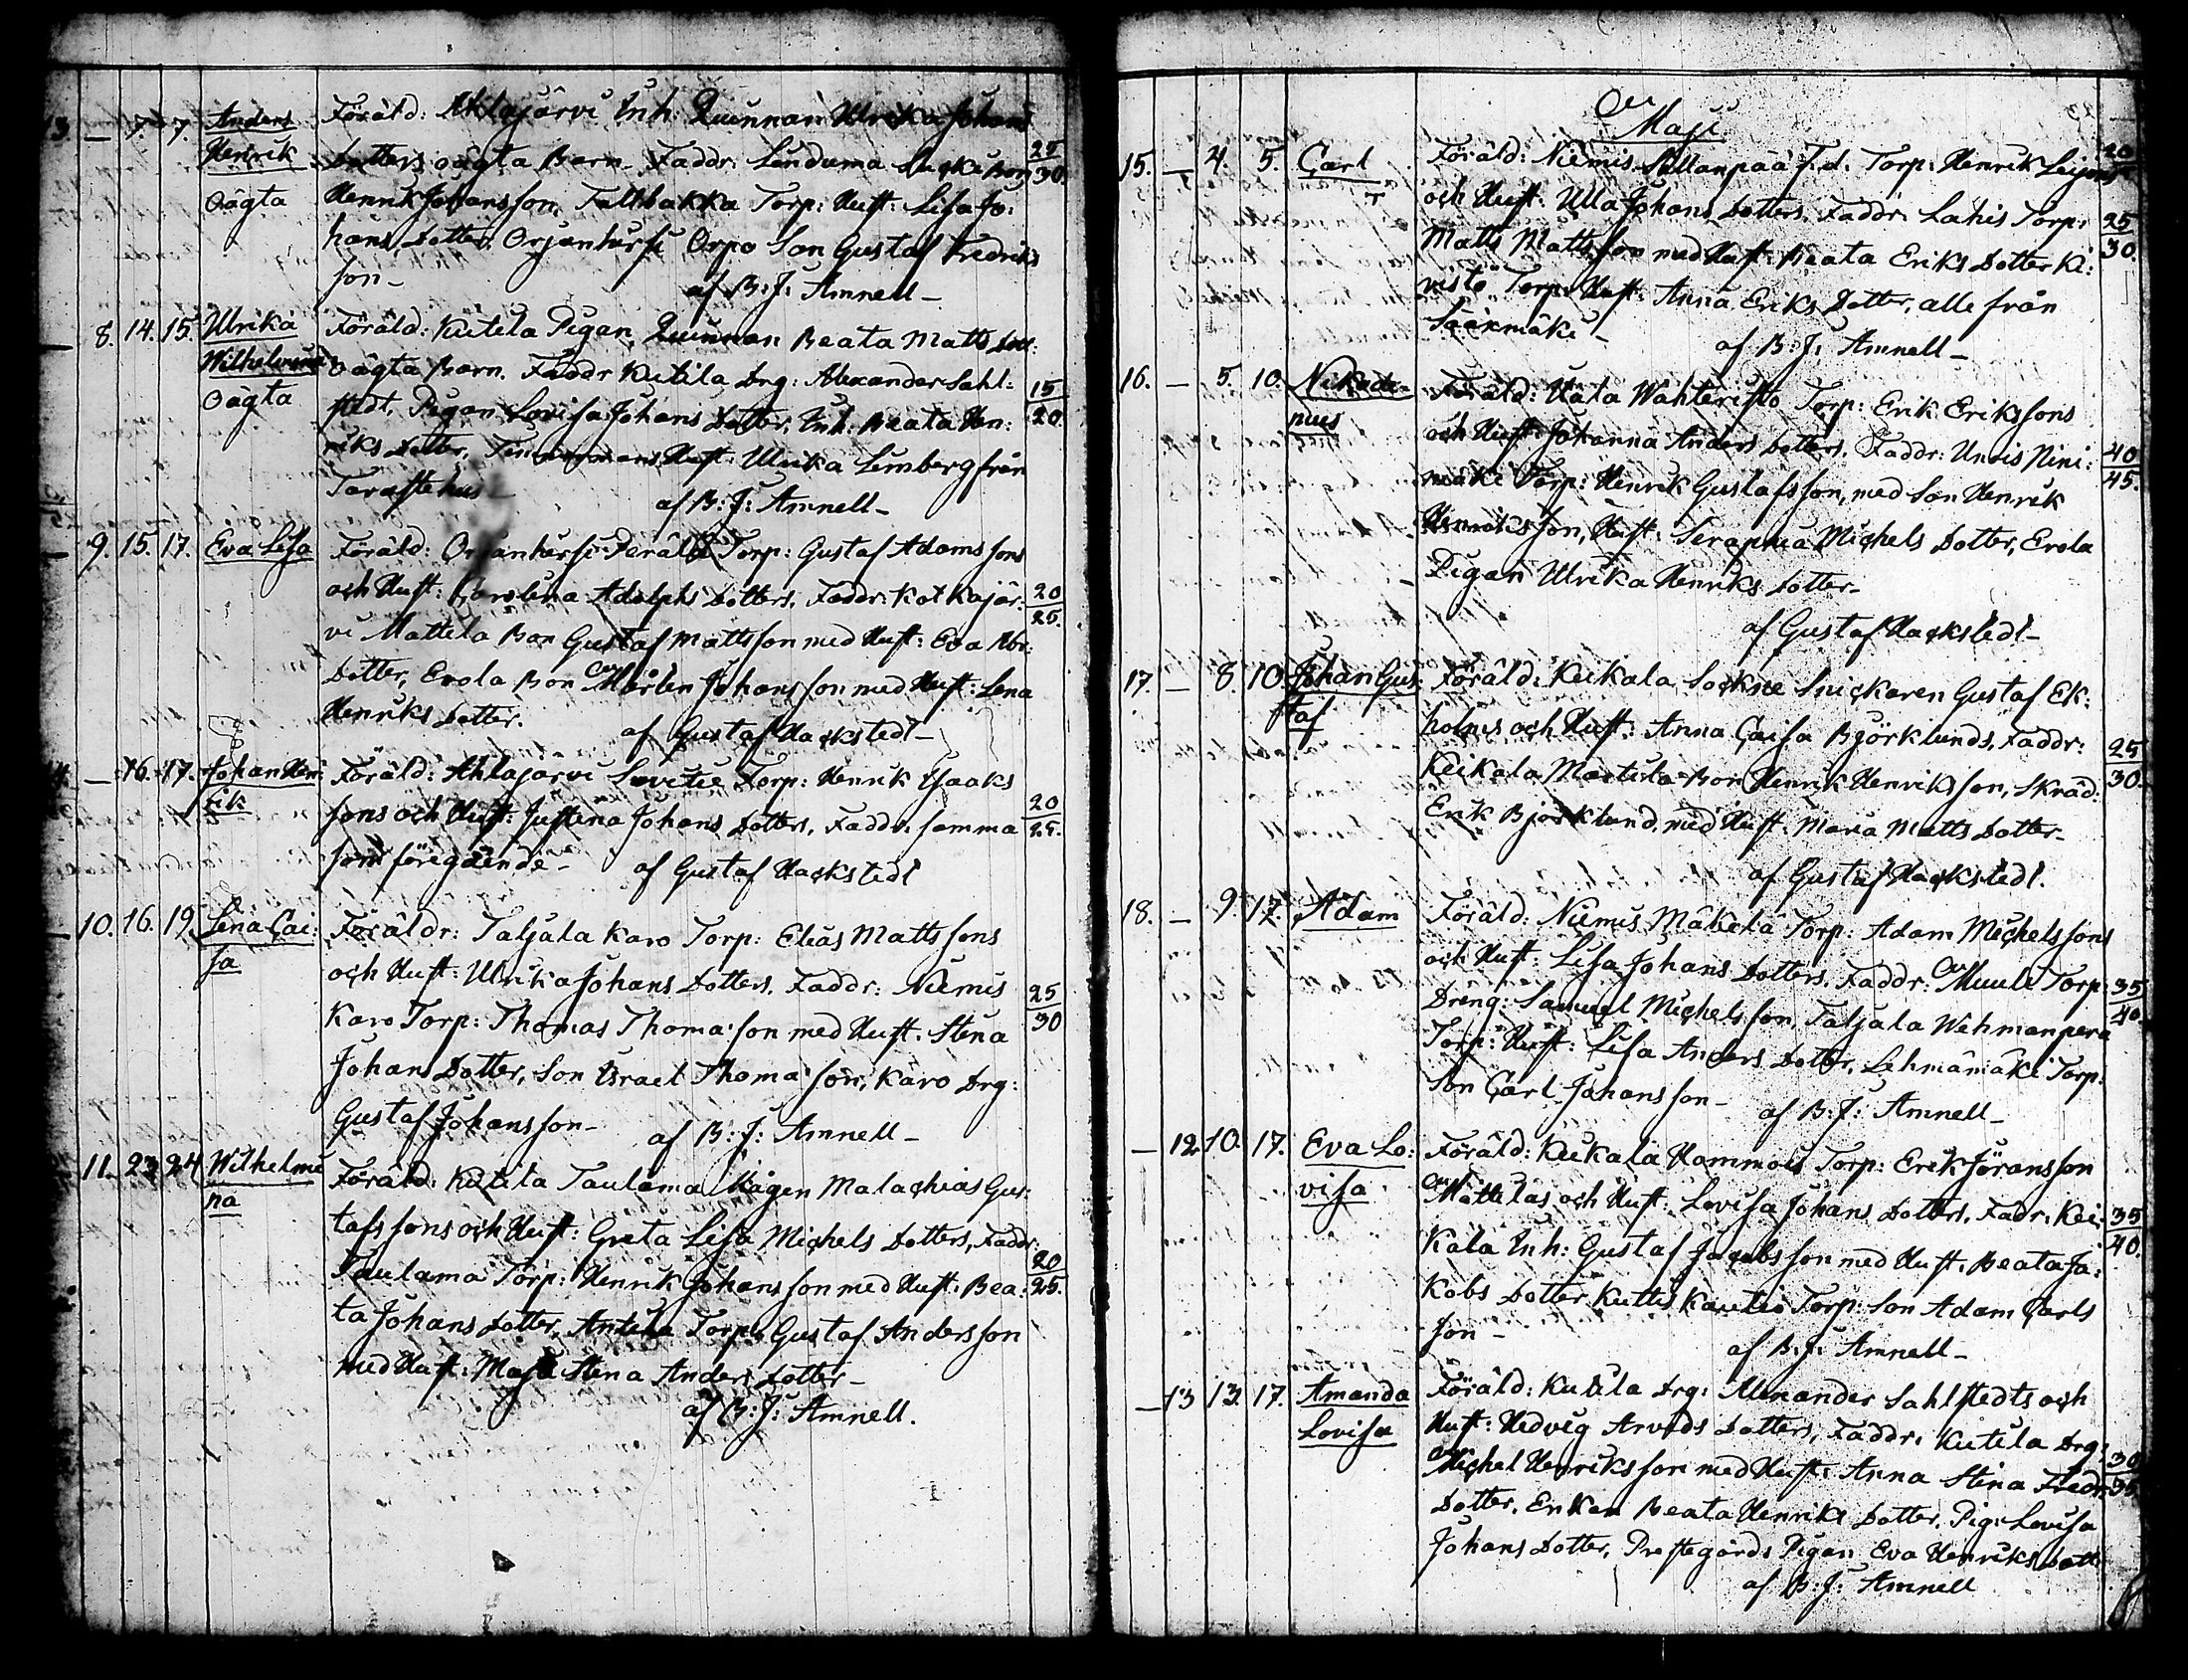 13. — 7. 7. Anders Föräld: Ahlajärvi Inh. Quinnan Ulrika Johans
Henrik Dotters oägta Barn. Faddr: Lunduma Bon 25/30.
Oägta Henrik Johansson, Tallbakka Torp: Hust: Lisa Jo:
hans Dotter. Orjanhirsi Orpo Son Gustaf Fredriks
son —
af B: J: Amnell —
— 8. 14. 15. Ulrika Föräld: Kutila Pigan, Quinnan Beata Matts Dott:
Wilhelmina oägta Barn. Faddr Kutila Drg: Alexander Sahl: 15/20
Oägta stedt, Pigan Lovisa Johans Dotter, Inh: Beata Hen:
riks Dotter, Timmermans Hust: Ulrika Limberg från
Tavastehus —
af B: J: Amnell —
— 9. 15. 17. Eva Lisa Föräld: Orjanhirsi Perälä Torp: Gustaf Adams sons
och Hust: Carolina Adolphs Dotters. Faddr: Kotkajär: 20/25.
vi Mattila Bon Gustaf Mattsson med Hust: Eva Abr:
Dotter, Erola Bon Mårten Johansson med Hust: Lena
Henriks Dotter.
af Gustaf Hackstedt —
14. — 16. 17. Johan Hen: Föräld: Ahlajärvi Torp: Henrik Isaaks
rik sons och Hust: Justina Johans Dotters, Faddr: samma 20/25.
som föregående —
af Gustaf Hackstedt
— 10. 16. 19. Lena Cai: Föräldr: Taljala Karo Torp: Elias Matts sons
sa och Hust: Ulrika Johans Dotters. Faddr: Niemis 25/30
Karo Torp: Thomas Thoma: son med Hust. Stina
Johans Dotter, Son Israel Thoma: son, Karo Drg:
Gustaf Johansson —
af B: J: Amnell —
11. 23. 24 Wilhelmi Föräld: Kutila Taulama Mågen Malachias Gus:
na tafs sons och Hust: Greta Lisa Michels Dotters, Faddr:
Taulama Torp: Henrik Johansson med Hust: Bea: 20/25.
ta Johans Dotter, Anttila Torp: Gustaf Andersson
med Hust: Maja Stina Anders Dotter —
af B: J: Amnell.
Maji
15. — 4. 5. Carl Föräld: Niemis Sillanpää T.d. Torp: Henrik Leijons 20
och Hust: Ulla Johans Dotters. Faddr: Lahis Torp: 25/30.
Matts Mattsson med Hust: Beata Eriks Dotter Ki:
vistö Torp: Hust: Anna Eriks Dotter, alle från
Sääxmäki —
af B: J: Amnell —
16. — 5. 10. Nikode= Föräld: Uala Wahteristo Torp: Erik Erikssons
mus och Hust: Johanna Anders Dotters. Faddr: Uneis Nini: 40/45.
mäki Torp: Henrik Gustafsson, med Son Henrik
Henriksson, Hust: Seraphia Michels Dotter, Erola
Pigan Ulrika Henriks Dotter —
af Gustaf Hackstedt —
17. — 8. 10. Johan Gus: Föräld: Keikala Sockne Snickaren Gustaf Ek:
taf holms och Hust: Anna Caisa Björklunds, Faddr: 25/30.
Keikala Marttila Bon Henrik Henriksson, Skräd:
Erik Björklund, med Hust: Maria Matts Dotter —
af Gustaf Hackstedt.
18. — 9. 17. Adam Föräld: Niemis Mäkelä Torp: Adam Michels sons
och Hust: Lisa Johans Dotters. Faddr: Muuli Torp: 35/40.
Dreng: Samuel Michelsson, Taljala Wahmanpera
Torp: Hust: Lisa Anders Dotter, Lehmämäki Torp:
Son Carl Johansson —
af B: J: Amnell —
— 12. 10. 17. Eva Lo: Föräld: Keikala Hammois Torp: Erik Göransson
visa Mattilas och Hust: Lovisa Johans Dotters. Fadr: Kei: 35/40.
kala Inh: Gustaf Jacobsson med Hust: Beata Ja:
kobs Dotter Kuttis Kautio Torp: Son Adam Carls
son —
af B: J: Amnell —
— 13 13. 17. Amanda Föräld: Kutila Drg: Alexander Sahlstedts och
Lovisa Hust: Hedvig Arvids Dotters, Faddr: Kutila Drg:
Michel Henriksson med Hust: Anna Stina Fredr: 30/35
Dotter. Enkan Beata Henriks Dotter. Pig: Lovisa
Johans Dotter, Prestegårds Pigan Eva Henriks Dott:
af B: J: Amnell